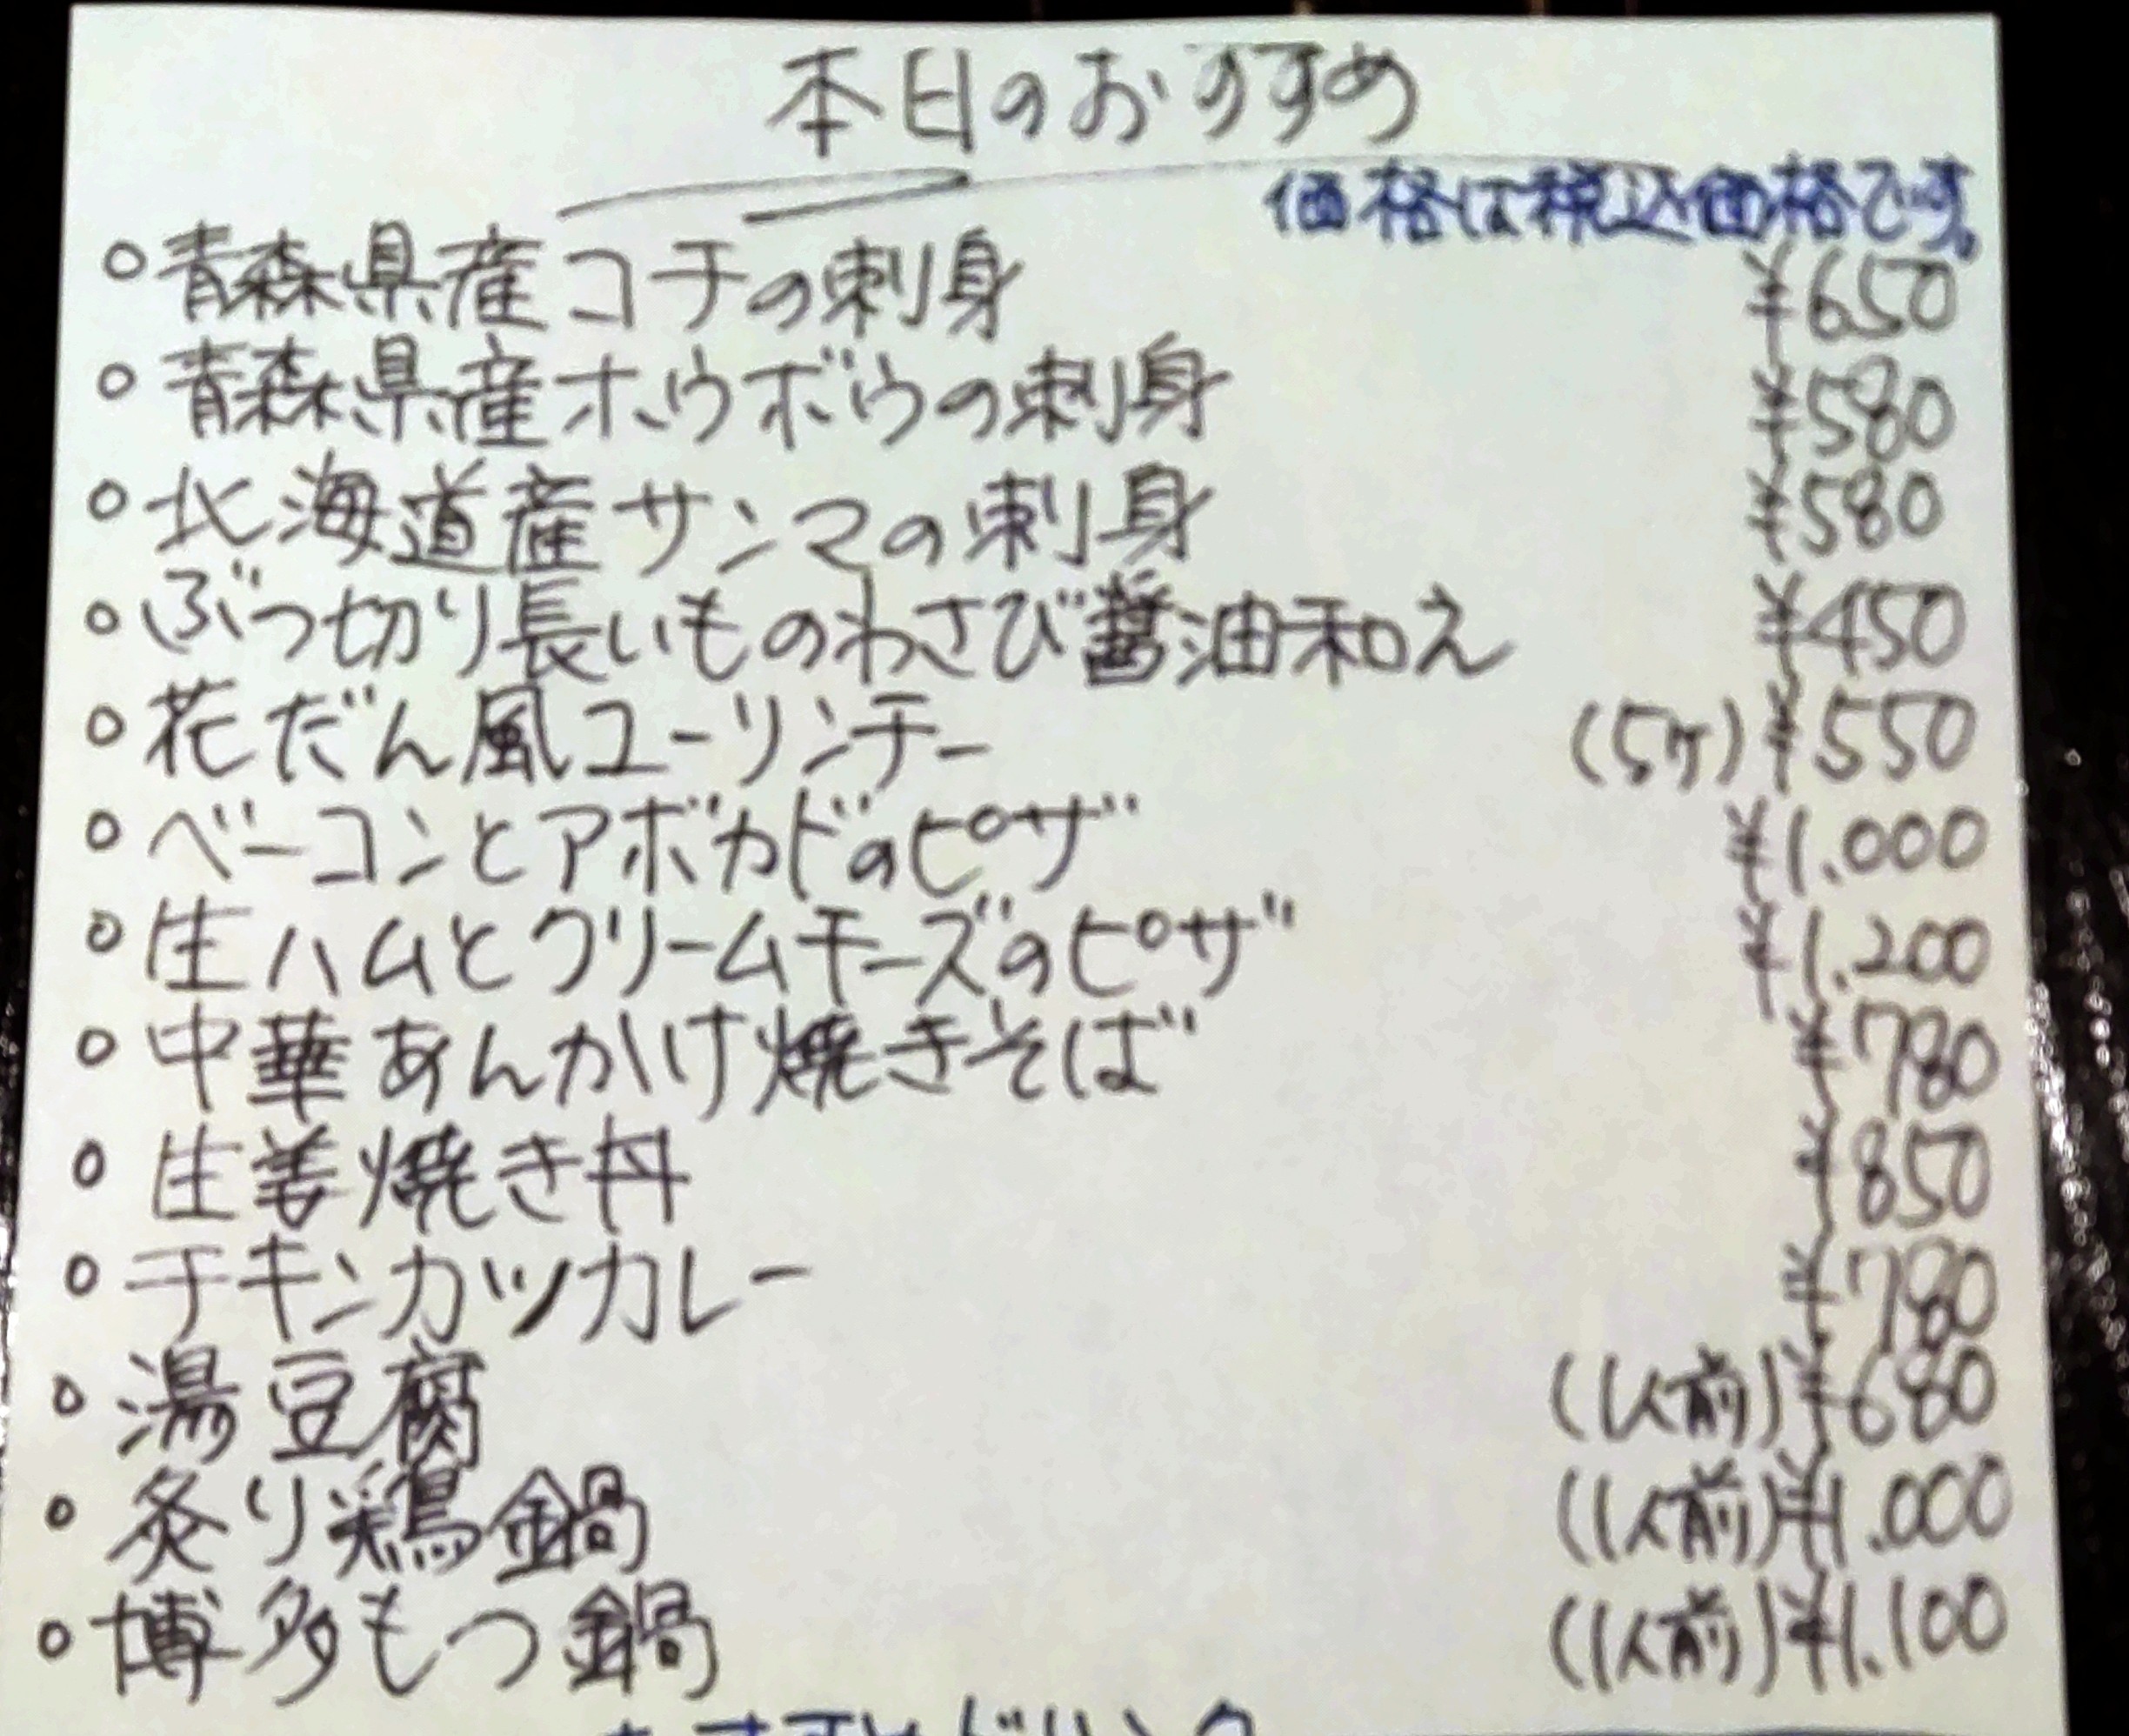 本日のおすすめ
価格は税込価格です。
○青森県産コチの刺身 ¥650
○青森県産ホウボウの刺身 ¥580
○北海道産サンマの刺身 ¥580
○ぶつ切り長いものわさび醤油和え ¥450
○花だん風ユーリンチー (5ケ)¥550
○ベーコンとアボカドのピザ ¥1.000
○生ハムとクリームチーズのピザ ¥1.200
○中華あんかけ焼きそば ¥780
○生姜焼き丼 ¥850
○チキンカツカレー ¥780
○湯豆腐 (1人前)¥680
○炙り鶏鍋 (1人前)¥1.000
○博多もつ鍋 (1人前)¥1.100